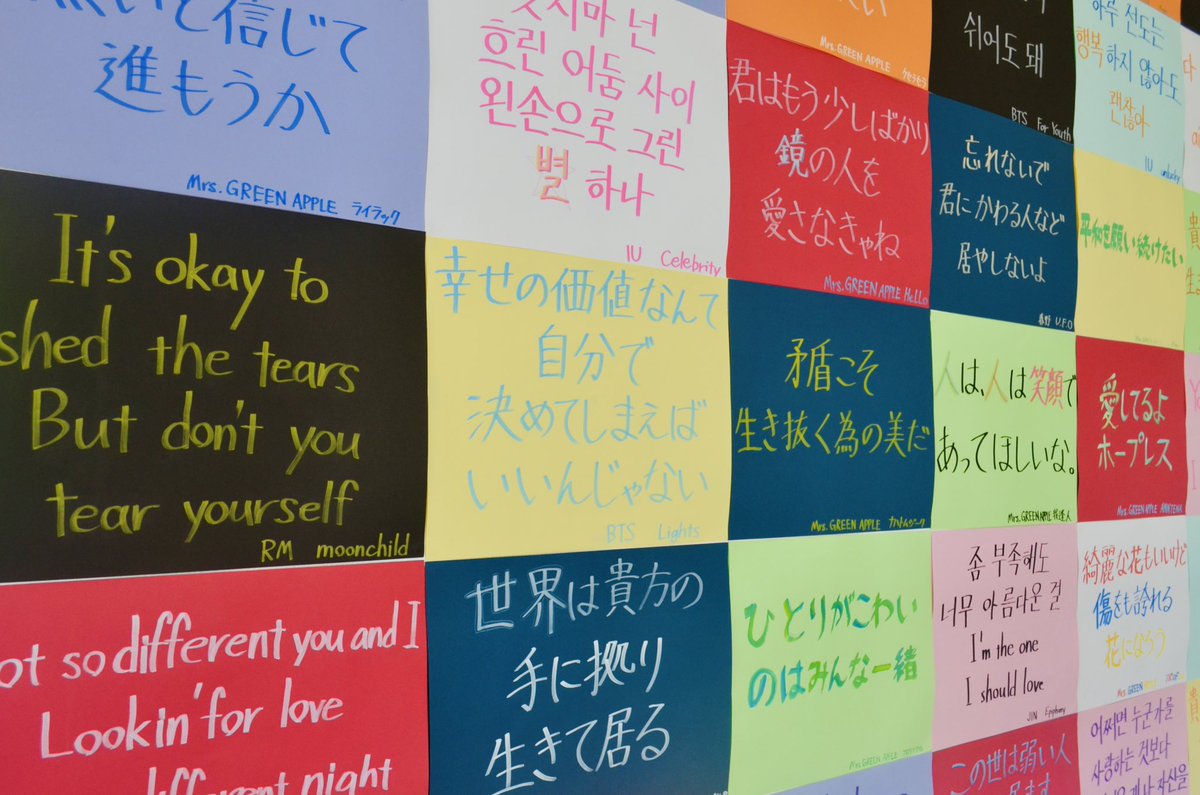 と信じて
進もうか
Mrs. GREEN APPLE ライラック
넌
흐린 어둠 사이
왼손으로 그린
별 하나
IU Celebrity
Mrs. GREEN APPLE ケセラセラ
쉬어도 돼
BTS For Youth
하루 전도는
행복하지 않아도
괜찮아
IU unlucky
君はもう少しばかり
鏡の人を
愛さなきゃね
Mrs. GREEN APPLE Hello
忘れないで
君にかわる人など
居やしないよ
春野 U.F.O
平和を願い続けたい
It's okay to
shed the tears
But don't you
tear yourself
RM moonchild
幸せの価値なんて
自分で
決めてしまえば
いいんじゃない
BTS Lights
矛盾こそ
生き抜く為の美だ
Mrs. GREEN APPLE
人は、人は笑顔で
あってほしいな。
Mrs. GREEN APPLE
愛してるよ
ホープレス
Mrs. GREEN APPLE ANTENNA
ot so different you and I
Lookin' for love
different night
世界は貴方の
手に拠り
生きて居る
ひとりがこわい
のはみんな一緒
Mrs. GREEN APPLE
좀 부족해도
너무 아름다운 걸
I'm the one
I should love
JIN Epiphany
綺麗な花もいいけど
傷をも誇れる
花になろう
Mrs. GREEN APPLE
この世は弱い人
어쩌면 누군가를
사랑하는 것보다